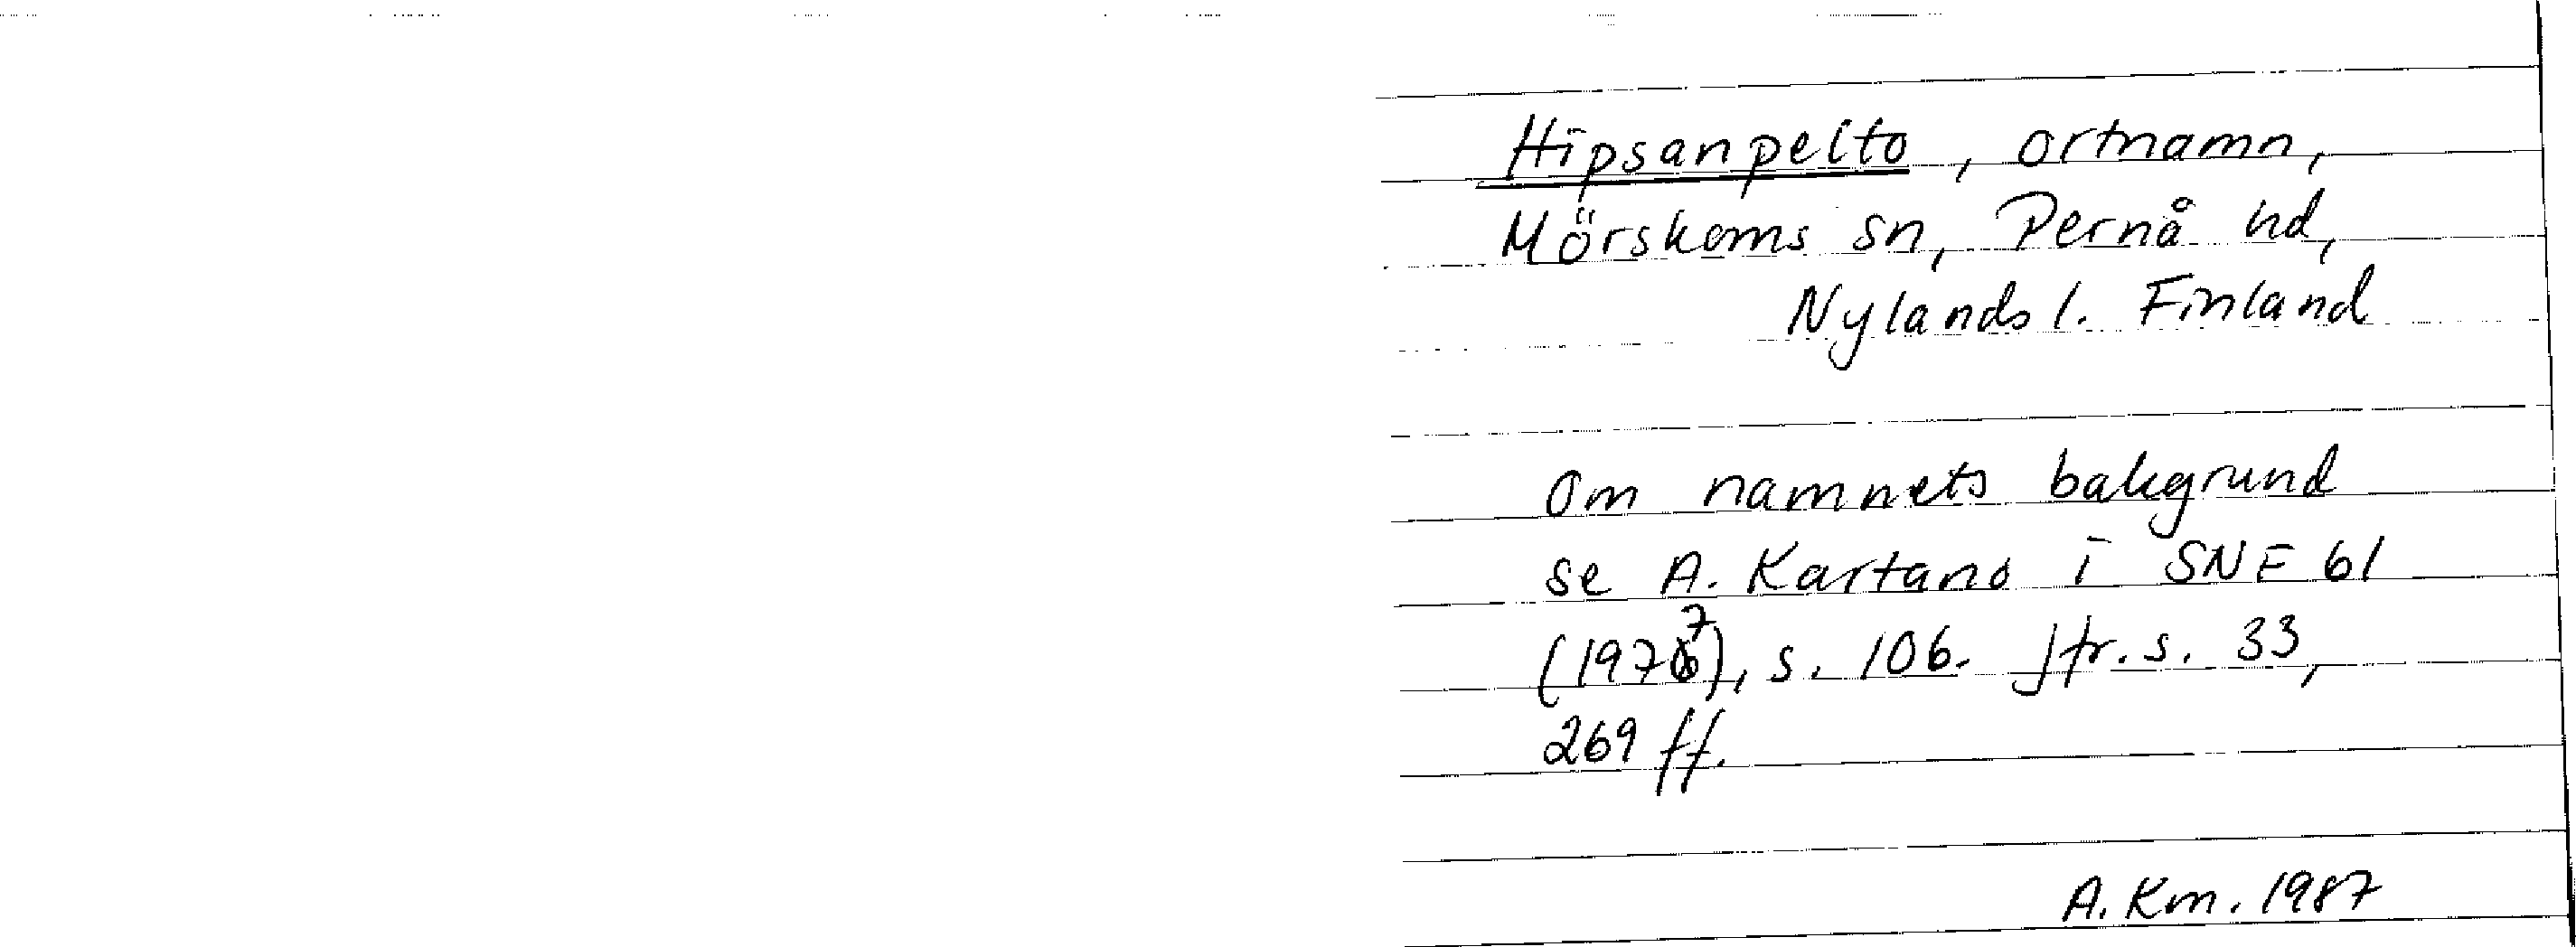 Hipsanpelto, ortnamn,
Mörskoms sn, Pernå hd,
Nylands l. Finland
Om namnets bakgrund
se A. Kartano i SNF 61
(1977), s. 106. Jfr. s. 33,
269 ff.
A. Km. 1987